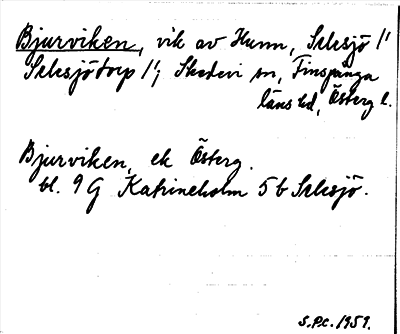 Bjurviken, vik av Hunn, Selesjö 1/1
Selesjötorp 1/1; Skedevi sn, Finspånga
läns hd, Österg l.
Bjurviken, ek Österg.
bl. 9 G Katrineholm 5 b Selesjö.
S.P.C. 1959.